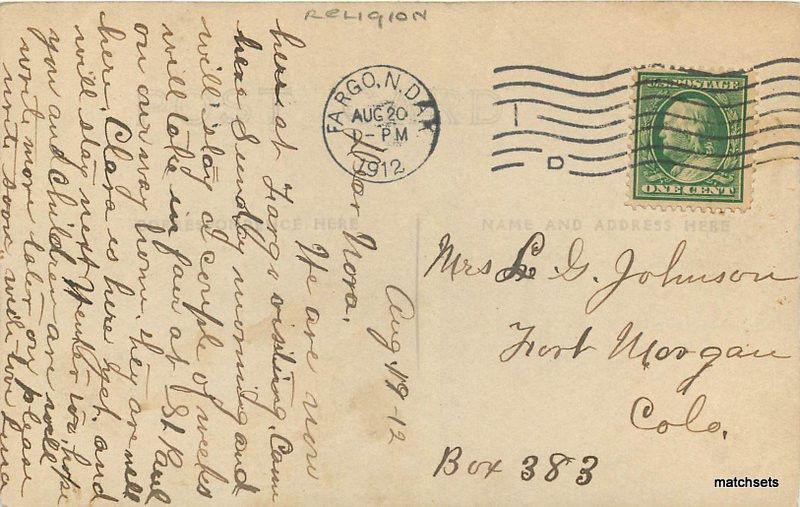 RELIGION
FARGO, N.DAK
AUG 20
-PM
1912
D
U.S. POSTAGE
ONE CENT
POST CARD
CORRESPONDENCE HERE
NAME AND ADDRESS HERE
Aug 19-12
Dear Nora,
We are now
here at Fargo visiting. Came
here Sunday morning and
will stay a couple of weeks
will take in fair at St. Paul
on our way home. They are well
here, Clara is here yet. and
will stay next Winter too, hope
you and children are well
write more later on please
write soon, with love Lina
Mrs L. G. Johnson
Fort Morgan
Colo.
Box 383
matchsets